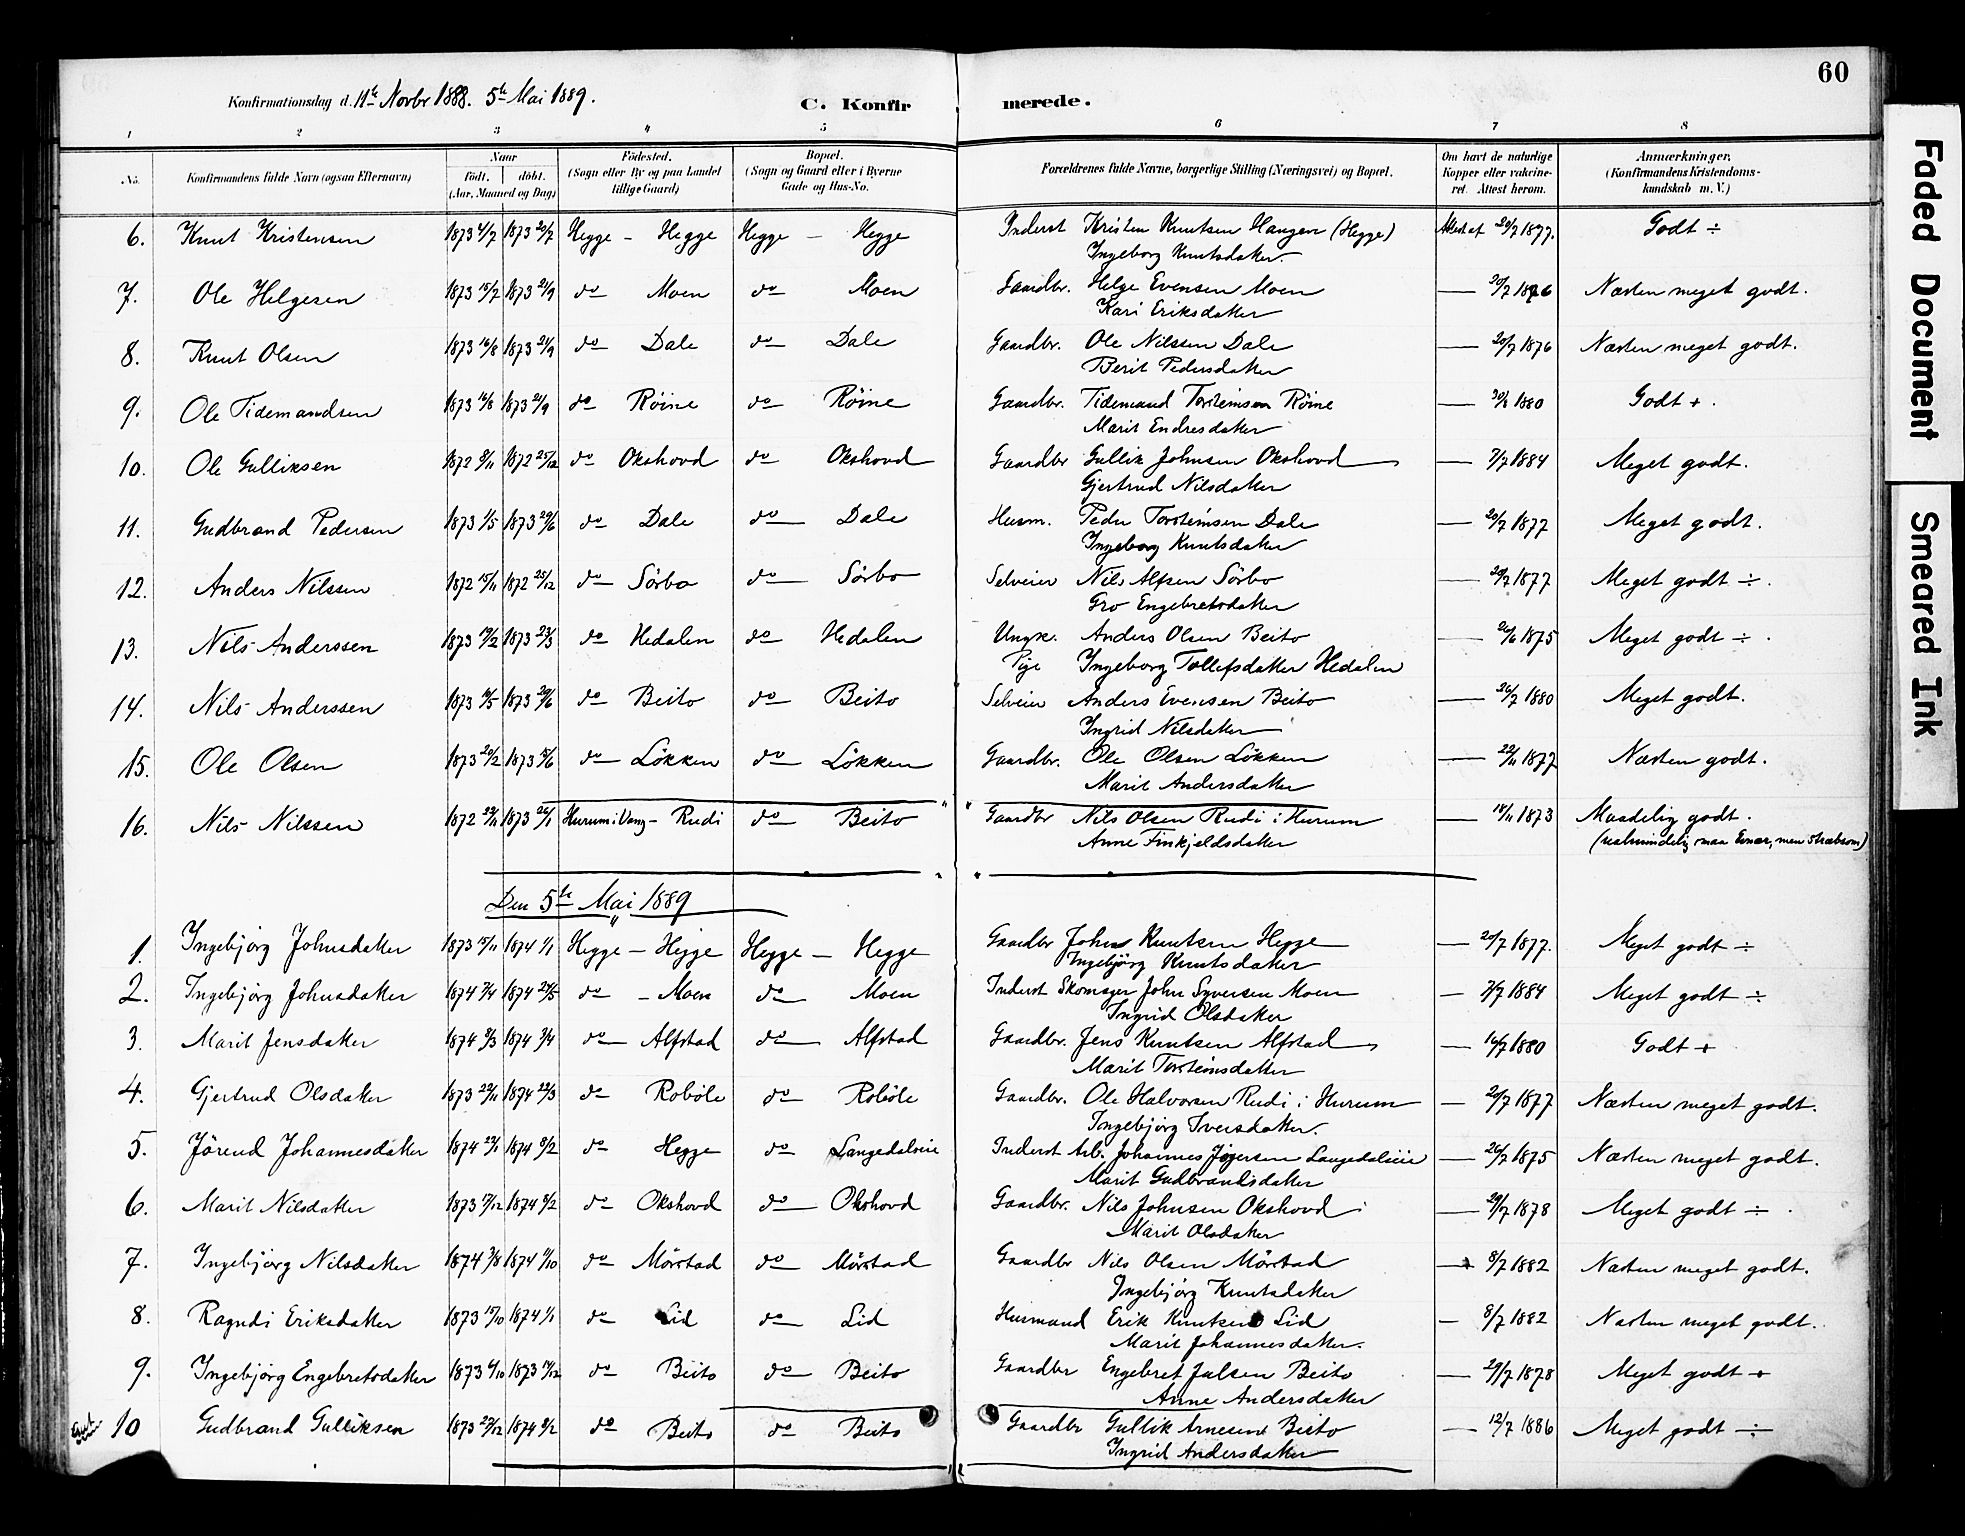 60
Konfirmationsdag d. 11te Novbr 1888. 5te Mai 1889. C. Konfirmerede.
1 2 3 4 5 6 7 8
No. Konfirmandens fulde Navn (ogsaa Efternavn) Naar Født. døbt. (Aar, Maaned og Dag) Fødested. (Sogn eller By og paa Landet tillige Gaard) Bopæl. (Sogn og Gaard eller i Byerne Gade og Hus-No. Forældrenes fulde Navne, borgerlige Stilling (Næringsvei) og Bopæl. Om havt de naturlige Kopper eller vakcineret. Attest herom. Anmærkninger. (Konfirmandens Kristendomskundskab m. V.)
6. Knut Kristensen 1873 4/7 1873 20/7 Hegge - Hegge Hegge - Hegge Inderst Kristen Knutsen Haugen (Hegge) Attest af 20/7 1877. Godt ÷
Ingeborg Knutsdatter.
7. Ole Helgesen 1873 15/7 1873 21/9 do Moen do Moen Gaardbr. Helge Evensen Moen — 20/7 1876 Næsten meget godt.
Kari Eriksdatter
8. Knut Olsen 1873 16/8 1873 21/9 do Dale do Dale Gaardbr. Ole Nilssen Dale — 20/7 1876 Næsten meget godt.
Berit Pedersdatter
9. Ole Tidemandsen 1873 16/8 1873 21/9 do Røine do Røine Gaardbr. Tidemand Torsteinsen Røine — 1880 Godt + .
Marit Endresdatter
10. Ole Gulliksen 1872 8/11 1872 25/12 do Okshovd do Okshovd Gaardbr Gullik Johnsen Okshovd — 7/7 1884 Meget godt.
Gjertrud Nilsdatter
11. Gudbrand Pedersen 1873 1/5 1873 29/6 do Dale do Dale Husm. Peder Torsteinsen Dale — 20/7 1877 Meget godt.
Ingeborg Knutsdatter
12. Anders Nilssen 1872 15/11 1872 25/12 do Sørbo do Sørbo Selveier Nils Alfsen Sørbo — 20/7 1877 Meget godt ÷.
Gro Engebretsdatter
13. Nils Anderssen 1873 19/2 1873 23/3 do Hedalen do Hedalen Ungk. Anders Olsen Beito — 26/6 1875 Meget godt ÷.
Pige Ingeborg Tollefsdatter Hedalen
14. Nils Anderssen 1873 1873 29/6 do Beito do Beito Selveier Anders Evensen Beito — 26/7 1880 Meget godt.
Ingrid Nilsdatter
15. Ole Olsen 1873 20/2 1873 15/6 do Løkken do Løkken Gaardbr. Ole Olsen Løkken — 22/11 1877 Næsten godt.
Marit Andersdatter
16. Nils Nilssen 1872 1873 Hurum i Vang - Rudi do Beito Gaardbr Nils Olsen Rudi i Hurum — 18/11 1873 Maadelig godt.
Anne Finkjeldsdatter (ualmindelig smaa Evner, men stræbsom)
Den 5te Mai 1889
1. Ingebjørg Johnsdatter 1873 15/11 1874 1/1 Hegge - Hegge Hegge - Hegge Gaardbr John Knutsen Hegge — 20/7 1877. Meget godt ÷
Ingebjørg Knutsdatter
2. Ingebjørg Johnsdatter 1874 7/4 1874 24/5 do - Moen do Moen Inderst Skomager John Syversen Moen — 7/7 1884 Meget godt ÷
Ingrid Olsdatter
3. Marit Jensdatter 1874 9/3 1874 3/4 do Alfstad do Alfstad Gaardbr. Jens Knutsen Alfstad — 16/7 1880 Godt +
Marit Torsteinsdatter
4. Gjertrud Olsdatter 1873 22/11 1874 22/3 do Robøle do Robøle Gaardbr. Ole Halvorsen Rudi i Hurum — 20/7 1877 Næsten meget godt.
Ingebjørg Iversdatter.
5. Jørend Johannesdatter 1874 23/1 1874 8/2 do Hegge do Langedalseie Inderst Arb. Johannes Langedalseie — 26/7 1875 Næsten meget godt.
Marit Gudbrandsdatter
6. Marit Nilsdatter 1873 17/12 1874 8/2 do Okshovd do Okshovd Gaardbr. Nils Johnsen Okshovd — 29/7 1878 Meget godt ÷
Marit Olsdatter
7. Ingebjørg Nilsdatter 1874 3/8 1874 11/10 do Mørstad do Mørstad Gaardbr Nils Olsen Mørstad — 8/7 1882 Næsten meget godt.
Ingebjørg Knutsdatter
8. Ragndi Eriksdatter 1873 15/10 1874 1/1 do Lid do Lid Husmand Erik Knutsen Lid — 8/7 1882 Næsten meget godt.
Marit Johannesdatter.
9. Ingebjørg Engebretsdatter 1873 1873 14/12 do Beito do Beito Gaardbr Engebret Julsen Beito — 29/7 1878 Meget godt +
Anne Andersdatter
10 Gudbrand Gulliksen 1873 27/12 1874 8/2 do Beito do Beito Gaardbr Gullik Arnesen Beito — 12/7 1886 Meget godt ÷
Ingrid Andersdatter
Faded Document
Smeared Ink